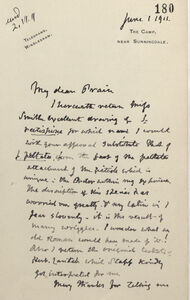 180
June 1 1911.
THE CAMP,
NEAR SUNNINGDALE.
TELEGRAMS,
WINDLESHAM.
My dear Prain
I herewith return Miss
Smith's excellent drawing of I.
for which name I would
with your approval substitute that of
I. peltata, from the fact of the peltate
attachment of the petiole which is
unique in the Order within my
The description of this species has
worried me greatly & my Latin is I
fear slovenly - it is the result of
many struggles. I wonder what an
old Roman would have made of it.
Also I return the original
Herb. which Stapf kindly
got interpreted for me
Many thanks for telling me